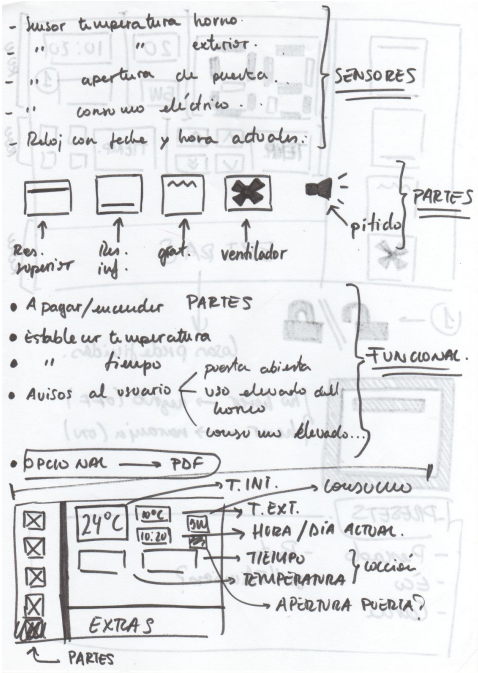 - Sensor temperatura horno.
- " " exterior.
- " apertura de puerta..
- " consumo eléctrico..
- Reloj con feche y hora actuales.
SENSORES
Res. superior
Res. inf.
grat.
ventilador
pitido
PARTES
• Apagar/encender PARTES
• Establecer temperatura
• " tiempo
• Avisos al usuario
puerta abierta
uso elevado del horno
consumo elevado...
FUNCIONAL.
• OPCIONAL → PDF
T. INT.
CONSUMO
24°C
10°C
5W
T. EXT.
10:20
HORA / DÍA ACTUAL.
TIEMPO
TEMPERATURA
cocción
APERTURA PUERTA?
EXTRAS
PARTES